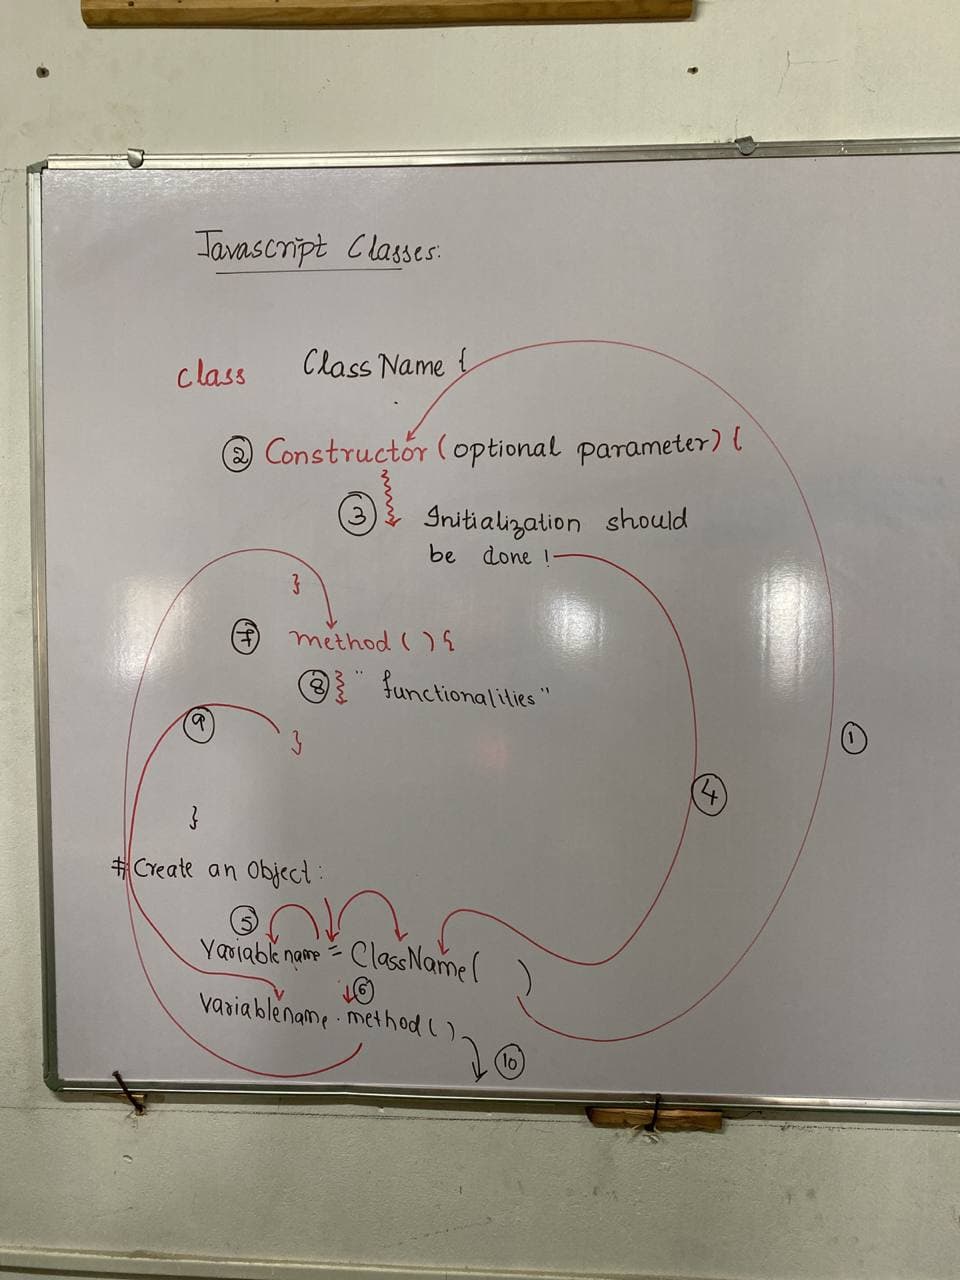 Javascript Classes:
class ClassName {
② Constructor (optional parameter) {
③ Initialization should
be done !
}
⑦ method ( ) {
⑧ " functionalities "
⑨
}
①
④
}
# Create an Object :
⑤
Variablename = ClassName ( )
⑥
Variablename . method ( )
⑩